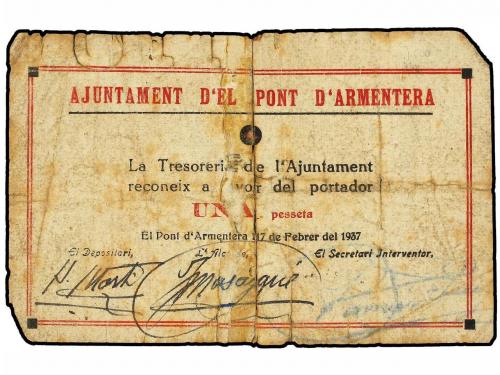 AJUNTAMENT D'EL PONT D'ARMENTERA
La Tresoreria de l'Ajuntament
reconeix a favor del portador
UNA pesseta
El Pont d'Armentera 17 de Febrer del 1937
El Depositari, L'Alcalde, El Secretari Interventor,